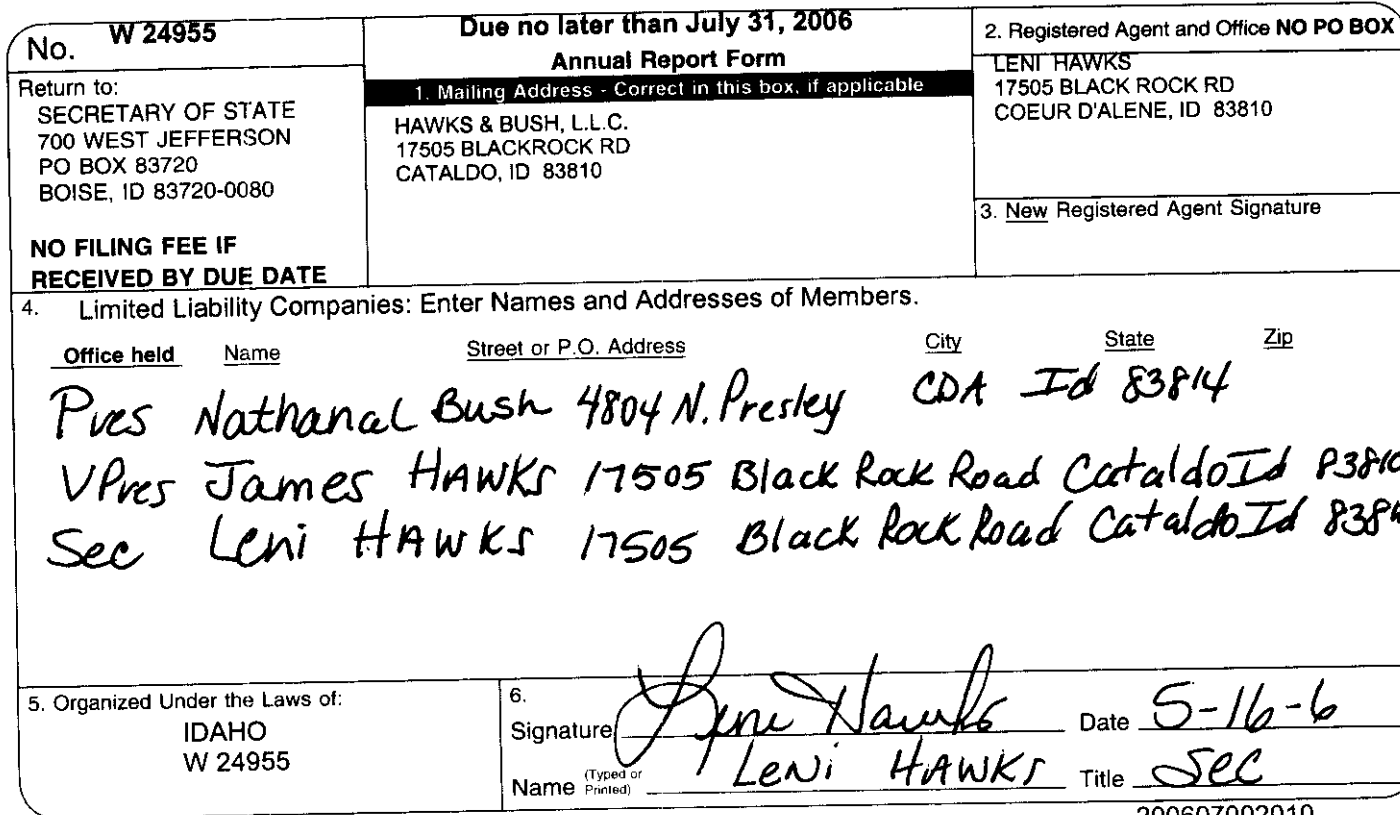 No. W 24955
Return to:
SECRETARY OF STATE
700 WEST JEFFERSON
PO BOX 83720
BOISE, ID 83720-0080
NO FILING FEE IF
RECEIVED BY DUE DATE
Due no later than July 31, 2006
Annual Report Form
1. Mailing Address - Correct in this box, if applicable
HAWKS & BUSH, L.L.C.
17505 BLACKROCK RD
CATALDO, ID 83810
2. Registered Agent and Office NO PO BOX
LENI HAWKS
17505 BLACK ROCK RD
COEUR D'ALENE, ID 83810
3. New Registered Agent Signature
4. Limited Liability Companies: Enter Names and Addresses of Members.
Office held Name Street or P.O. Address City State Zip
Pres Nathanal Bush 4804 N. Presley CDA Id 83814
VPres James HAWKS 17505 Black Rock Road Cataldo Id 83810
Sec Leni HAWKS 17505 Black Rock Road Cataldo Id
5. Organized Under the Laws of:
IDAHO
W 24955
6.
Signature Leni Hawks Date 5-16-6
Name (Typed or Printed) LeNi HAWKS Title Sec
200607002010